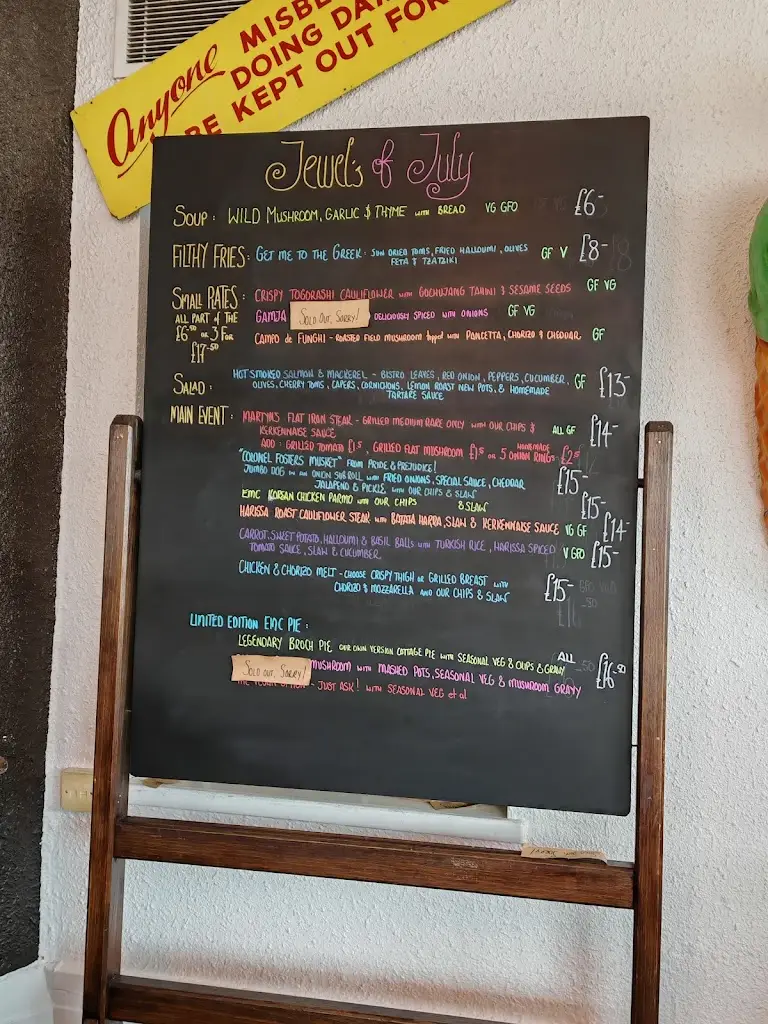 Anyone MISBE
DOING DA
BE KEPT OUT FOR
Jewel's of July
SOUP: WILD MUSHROOM, GARLIC & THYME WITH BREAD VG GFO £6-
FILTHY FRIES: GET ME TO THE GREEK: SUN DRIED TOMS, FRIED HALLOUMI, OLIVES GF V £8-
FETA & TZATZIKI
SMALL PLATES: CRISPY TOGORASHI CAULIFLOWER WITH GOCHUJANG TAHINI & SESAME SEEDS GF VG
ALL PART OF THE GAMJA SOLD OUT, SORRY! DELICIOUSLY SPICED WITH ONIONS GF VG
£6.50 OR 3 FOR CAMPO de FUNGHI - ROASTED FIELD MUSHROOM topped WITH PANCETTA, CHORIZO & CHEDDAR GF
£17.50
SALAD: HOT SMOKED SALMON & MACKEREL - BISTRO LEAVES, RED ONION, PEPPERS, CUCUMBER, GF £13-
OLIVES, CHERRY TOMS, CAPERS, CORNICHONS, LEMON ROAST NEW POTS, & HOMEMADE
TARTARE SAUCE
MAIN EVENT: MARTYN'S FLAT IRON STEAK - GRILLED MEDIUM RARE ONLY WITH OUR CHIPS & ALL GF £14-
KERKENNAISE SAUCE
ADD: GRILLED TOMATO £1.5, GRILLED FLAT MUSHROOM £1.5 OR 5 HOMEMADE ONION RINGS £2.5
"COLONEL FOSTERS MUSKET" FROM PRIDE & PREJUDICE!
JUMBO DOG IN AN ONION SUB ROLL WITH FRIED ONIONS, SPECIAL SAUCE, CHEDDAR £15-
JALAPENO & PICKLE WITH OUR CHIPS & SLAW
EMC KOREAN CHICKEN PARMO WITH OUR CHIPS & SLAW £15-
HARISSA ROAST CAULIFLOWER STEAK WITH BATATA HARRA, SLAW & KERKENNAISE SAUCE VG GF £14-
CARROT, SWEET POTATO, HALLOUMI & BASIL BALLS WITH TURKISH RICE, HARISSA SPICED V GFO £15-
TOMATO SAUCE, SLAW & CUCUMBER
CHICKEN & CHORIZO MELT - CHOOSE CRISPY THIGH OR GRILLED BREAST WITH £15-
CHORIZO & MOZZARELLA AND OUR CHIPS & SLAW
LIMITED EDITION EMC PIE:
LEGENDARY BROCH PIE OUR OWN VERSION COTTAGE PIE WITH SEASONAL VEG & CHIPS & GRAVY ALL £16.50
SOLD OUT, SORRY! MUSHROOM WITH MASHED POTS, SEASONAL VEG & MUSHROOM GRAVY
OPTION - JUST ASK! WITH SEASONAL VEG et al